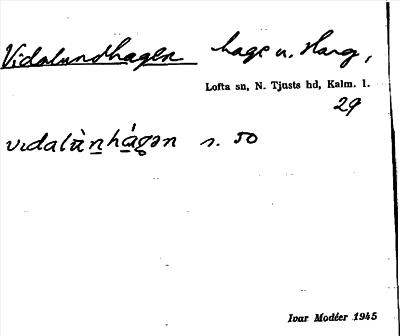 Vidalundhagen hage u. Harg,
Lofta sn, N. Tjusts hd, Kalm. l.
29
vıdalùn̲há̲gən s. 50
Ivar Modéer 1945